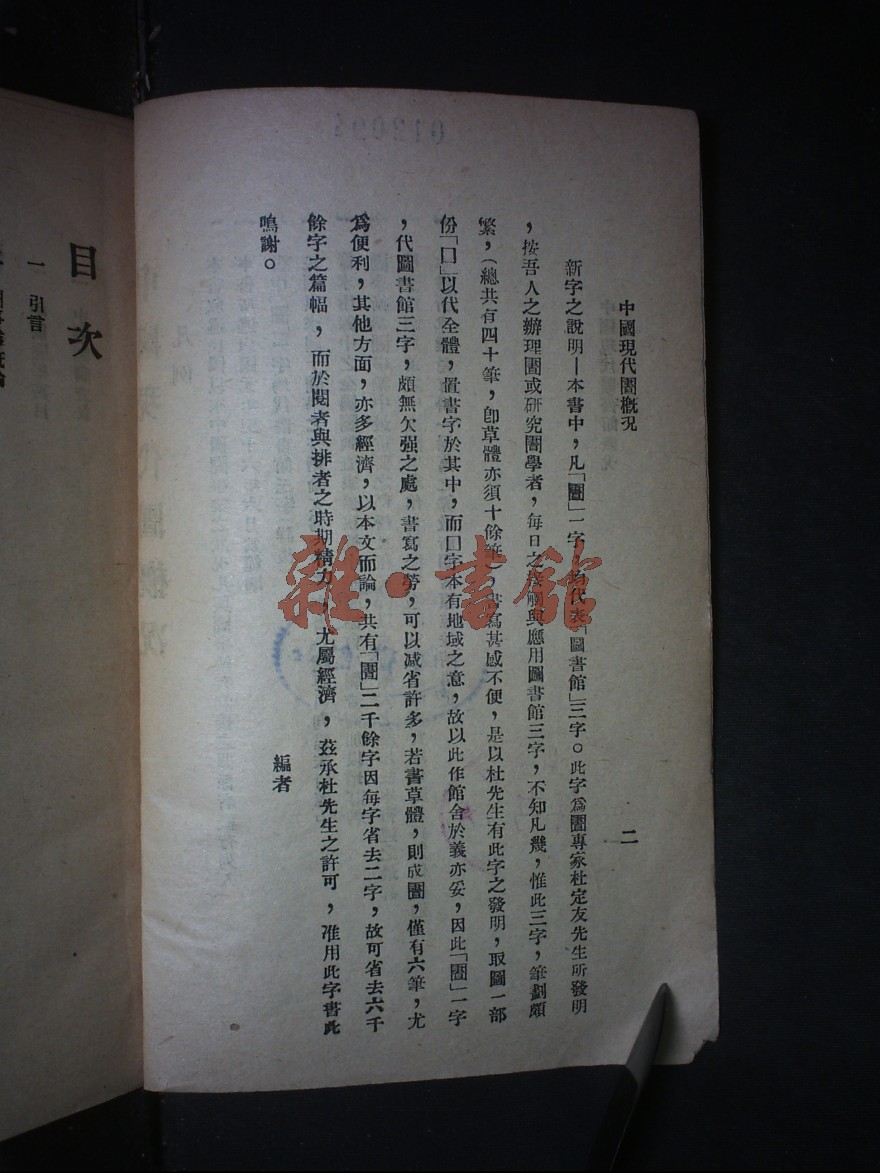 中國現代圕概況
二
新字之說明—本書中，凡「圕」一字，均代表「圖書館」三字。此字爲圕專家杜定友先生所發明
，按吾人之辦理圕或研究圕學者，每日之接觸與應用圖書館三字，不知凡幾，惟此三字，筆劃頗
繁，（總共有四十筆，卽草體亦須十餘筆），書寫甚感不便，是以杜先生有此字之發明，取圖一部
份「囗」以代全體，置書字於其中，而囗字本有地域之意，故以此作館舍於義亦妥，因此「圕」一字
，代圖書館三字，頗無欠强之處，書寫之勞，可以减省許多，若書草體，則成圕，僅有六筆，尤
爲便利，其他方面，亦多經濟，以本文而論，共有「圕」二千餘字因每字省去二字，故可省去六千
餘字之篇幅，而於閱者與排者之時期精力，尤屬經濟，茲承杜先生之許可，准用此字書此
鳴謝。
編者
目次
一 引言
雜·書館